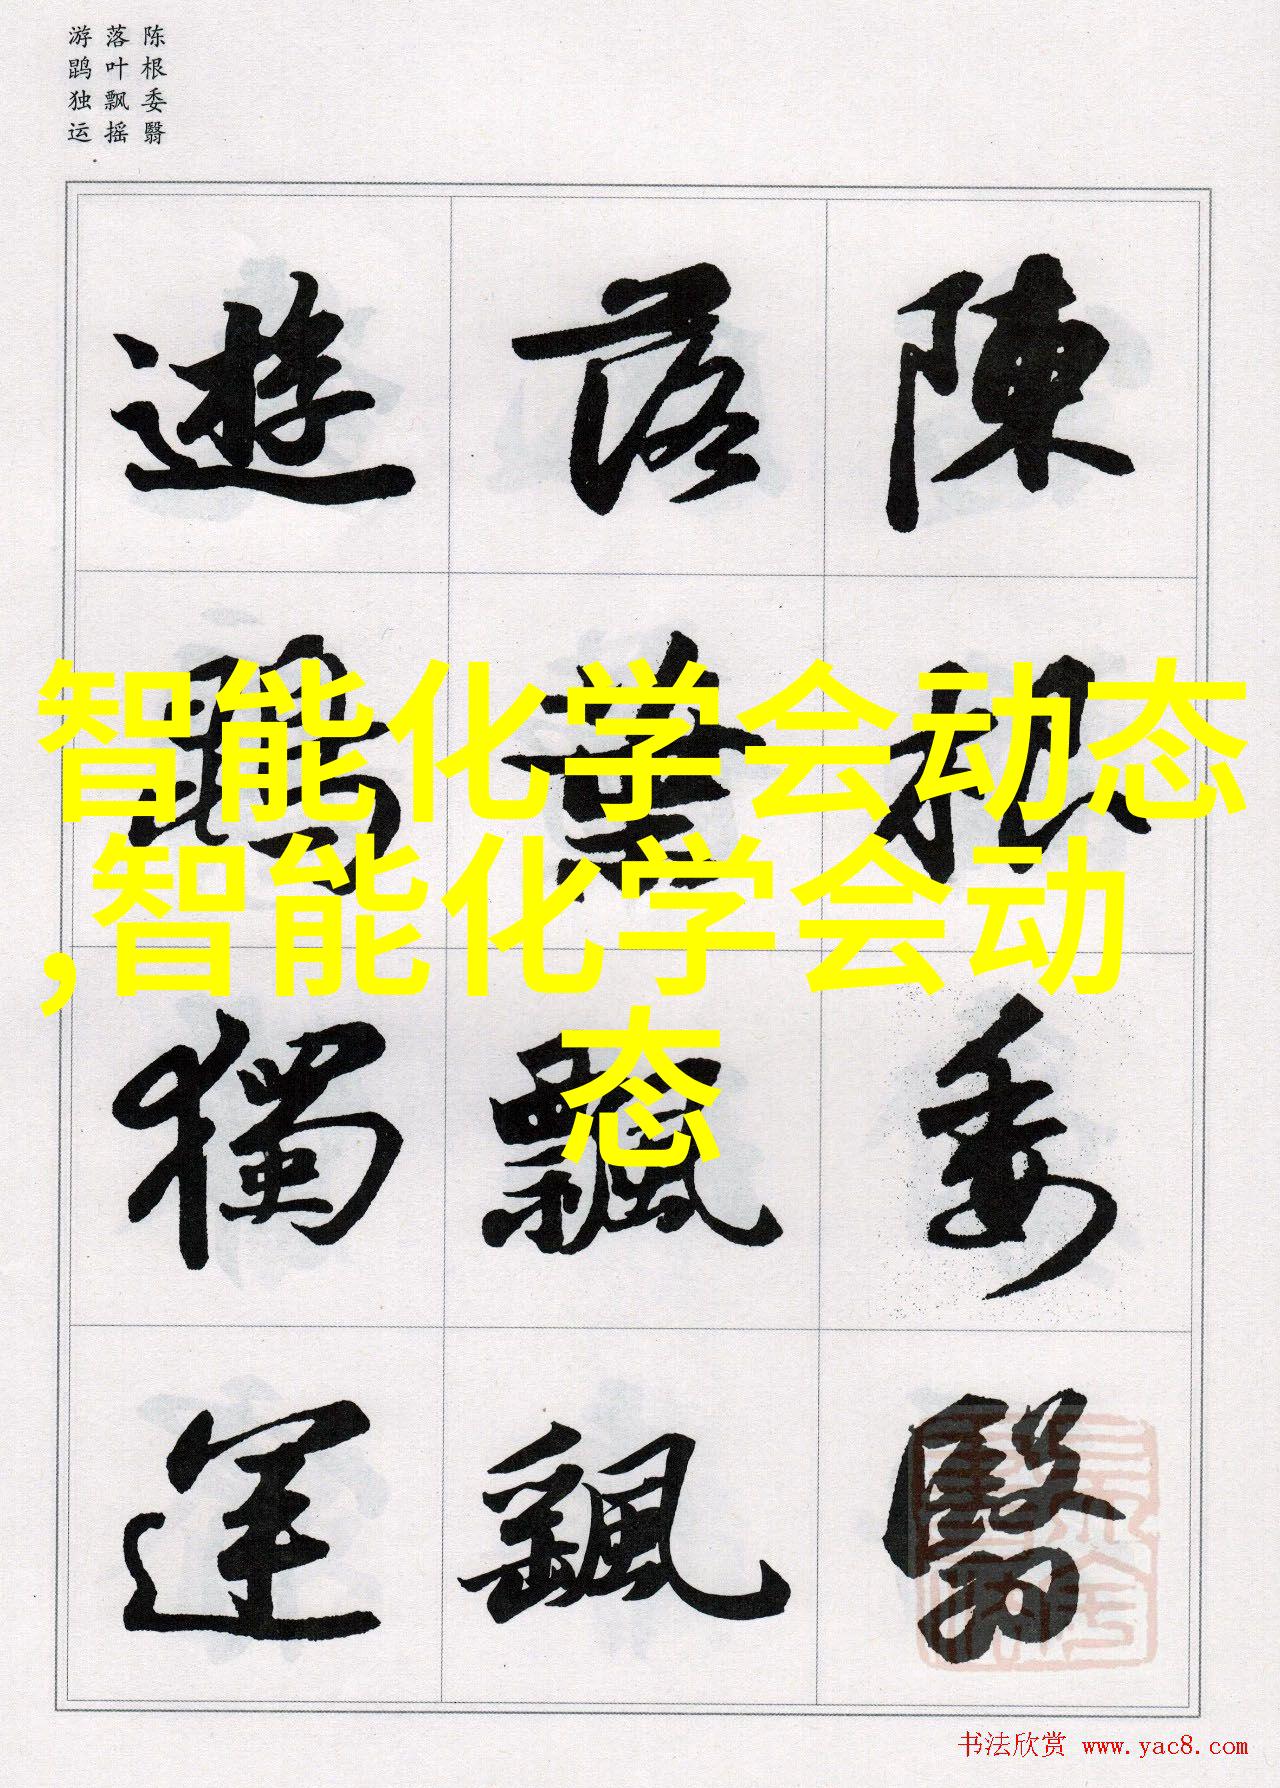 陈根委翳
落叶飘摇
游鹍独运
陳根委翳
落葉飄颻
遊鵾獨運
智能化学会动态
,智能化学会动
态
书法欣赏 www.yac8.com